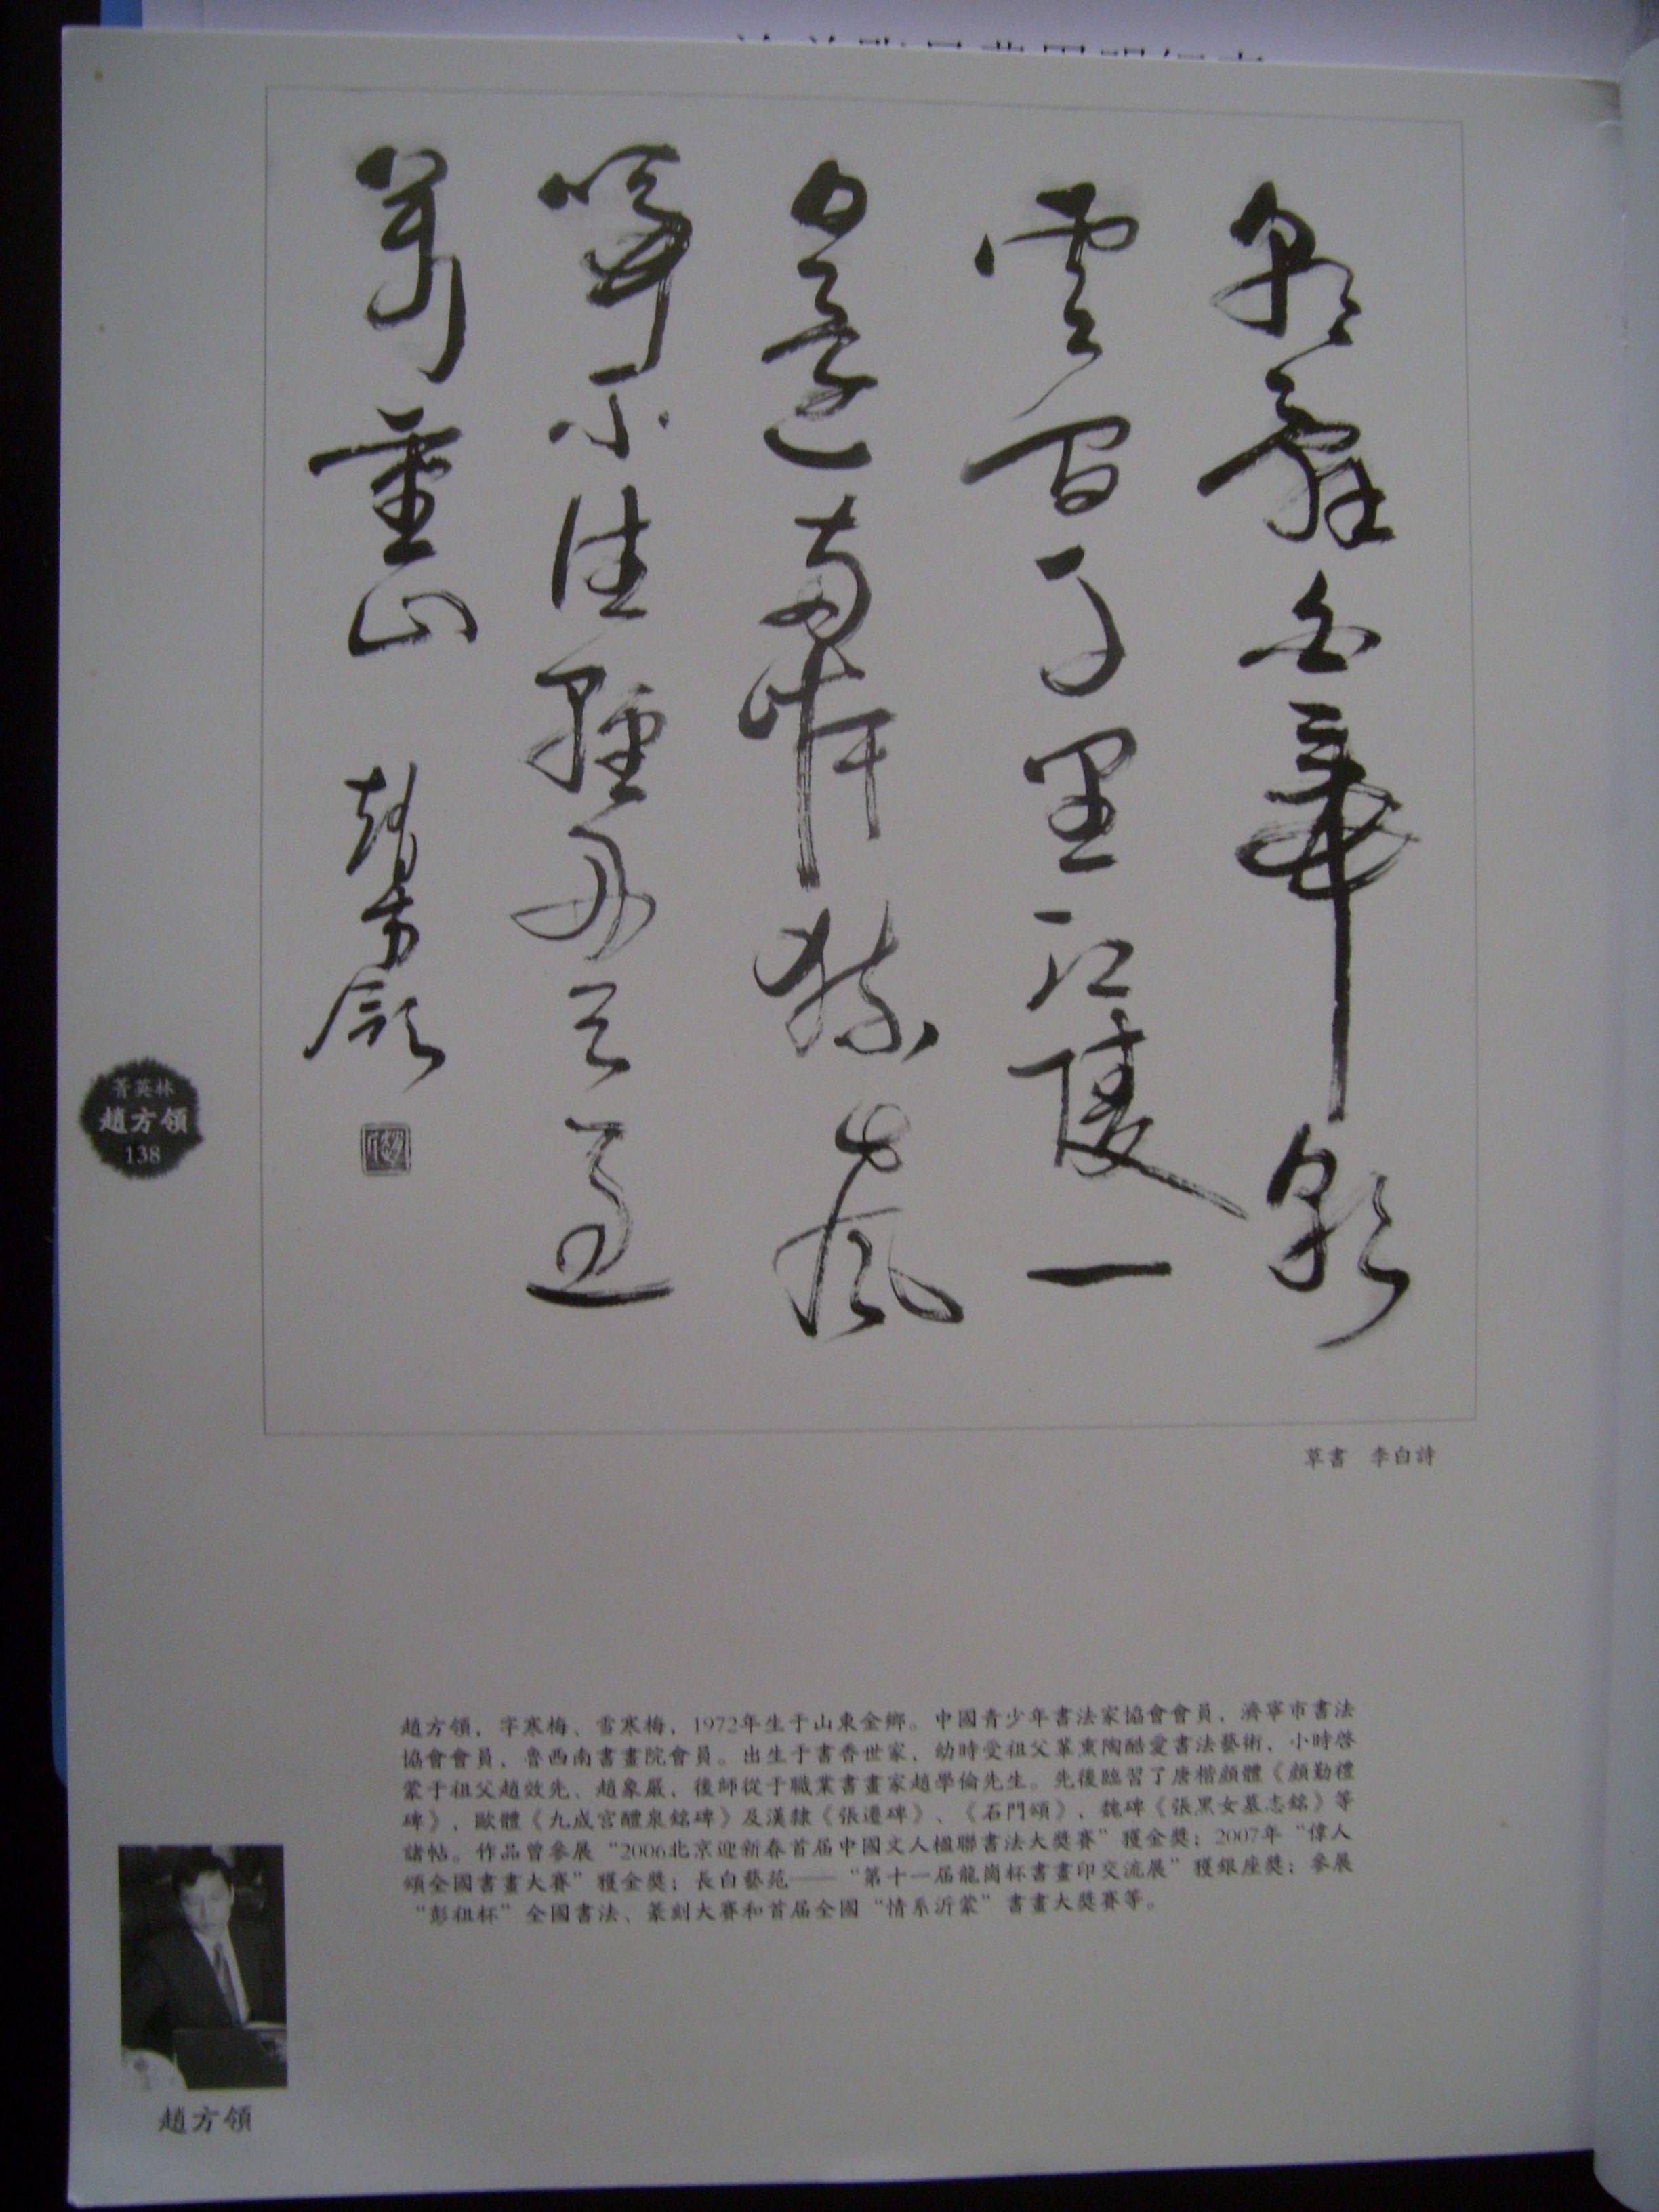 朝辭白帝彩
雲間千里江陵一
日還兩岸猿聲
啼不住輕舟已過
萬重山 趙方領
菁英林
趙方領
138
草書 李白詩
趙方領，字寒梅、雪寒梅，1972年生于山東金鄉。中國青少年書法家協會會員，濟寧市書法
協會會員，魯西南書畫院會員。出生于書香世家，幼時受祖父輩熏陶酷愛書法藝術，小時啓
蒙于祖父趙效先、趙象嚴，後師從于職業書畫家趙學倫先生。先後臨習了唐楷顔體《顔勤禮
碑》，歐體《九成宮醴泉銘碑》及漢隸《張遷碑》、《石門頌》，魏碑《張黑女墓志銘》等
諸帖。作品曾參展“2006北京迎新春首届中國文人楹聯書法大奬賽”獲金奬；2007年“偉人
頌全國書畫大賽”獲金奬；長白藝苑——“第十一届龍崗杯書畫印交流展”獲銀座奬；參展
“彭祖杯”全國書法、篆刻大賽和首届全國“情系沂蒙”書畫大奬賽等。
趙方領